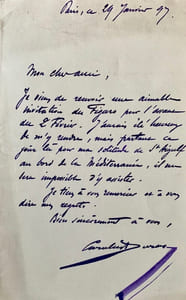 Paris, ce 29 Janvier 97.
Mon cher ami,
Je viens de recevoir une aimable
invitation du Figaro pour l'avant
du 2 Février. J'aurais été heureux
de m'y rendre, mais partant ce
jour là pour ma solitude de St Aigulf
au bord de la Méditerranée, il me
sera impossible d'y assister.
Je tiens à vous remercier et à vous
dire mes regrets.
Bien sincèrement à vous,
Carolus Duran